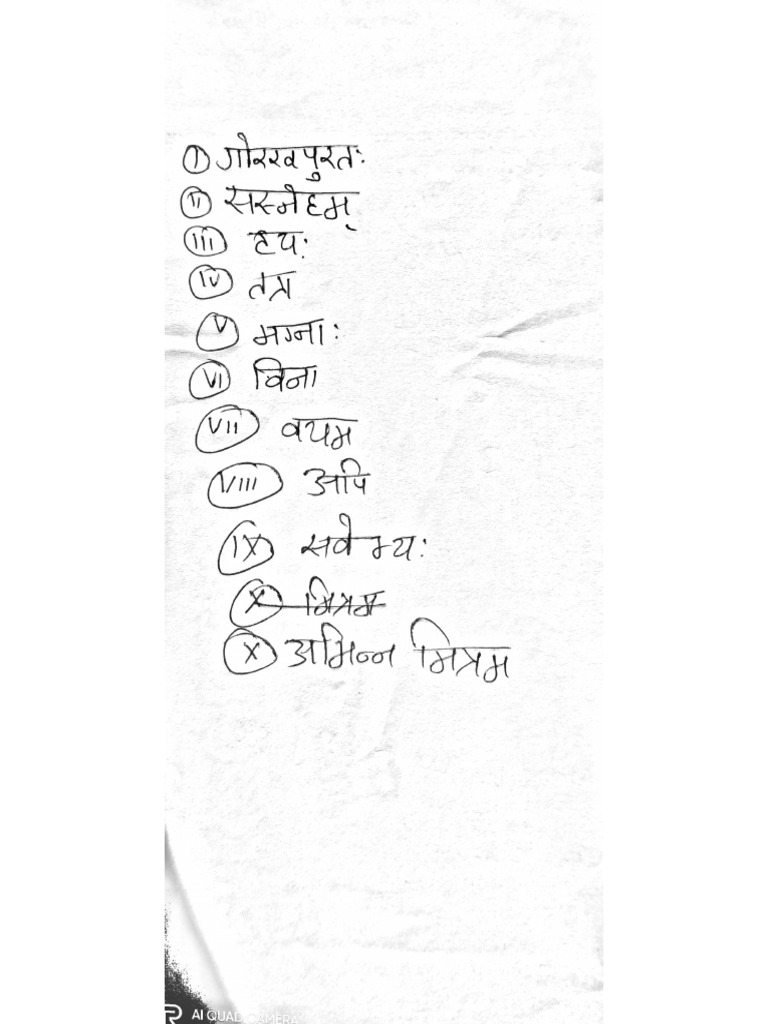 I गोरखपुरतः
II सस्नेहम्
III ह्यः
IV तत्र
V मग्नाः
VI विना
VII वयम
VIII अपि
IX सर्वेभ्यः
X मित्रम
X अभिन्न मित्रम
AI QUAD CAMERA